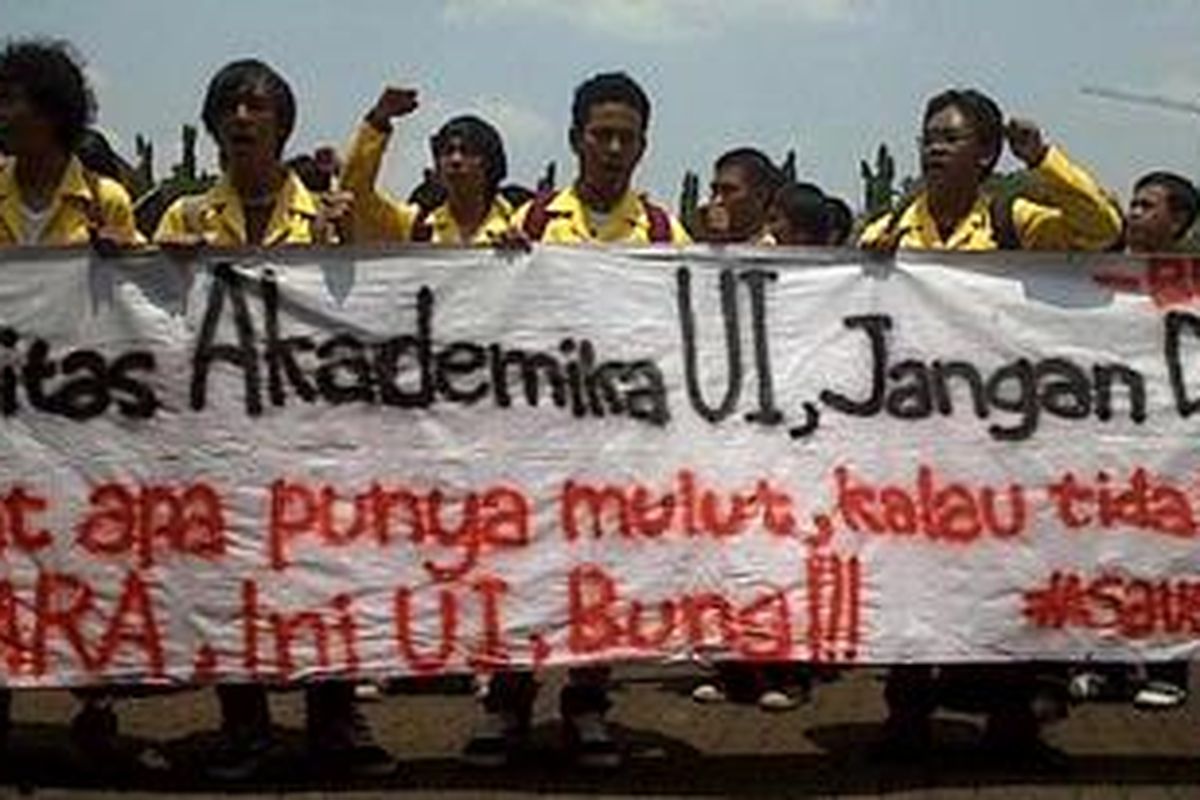 itas Akademika UI, Jangan
apa punya mulut, kalau tida
ARA, Ini UI, Bung!!!
#Save